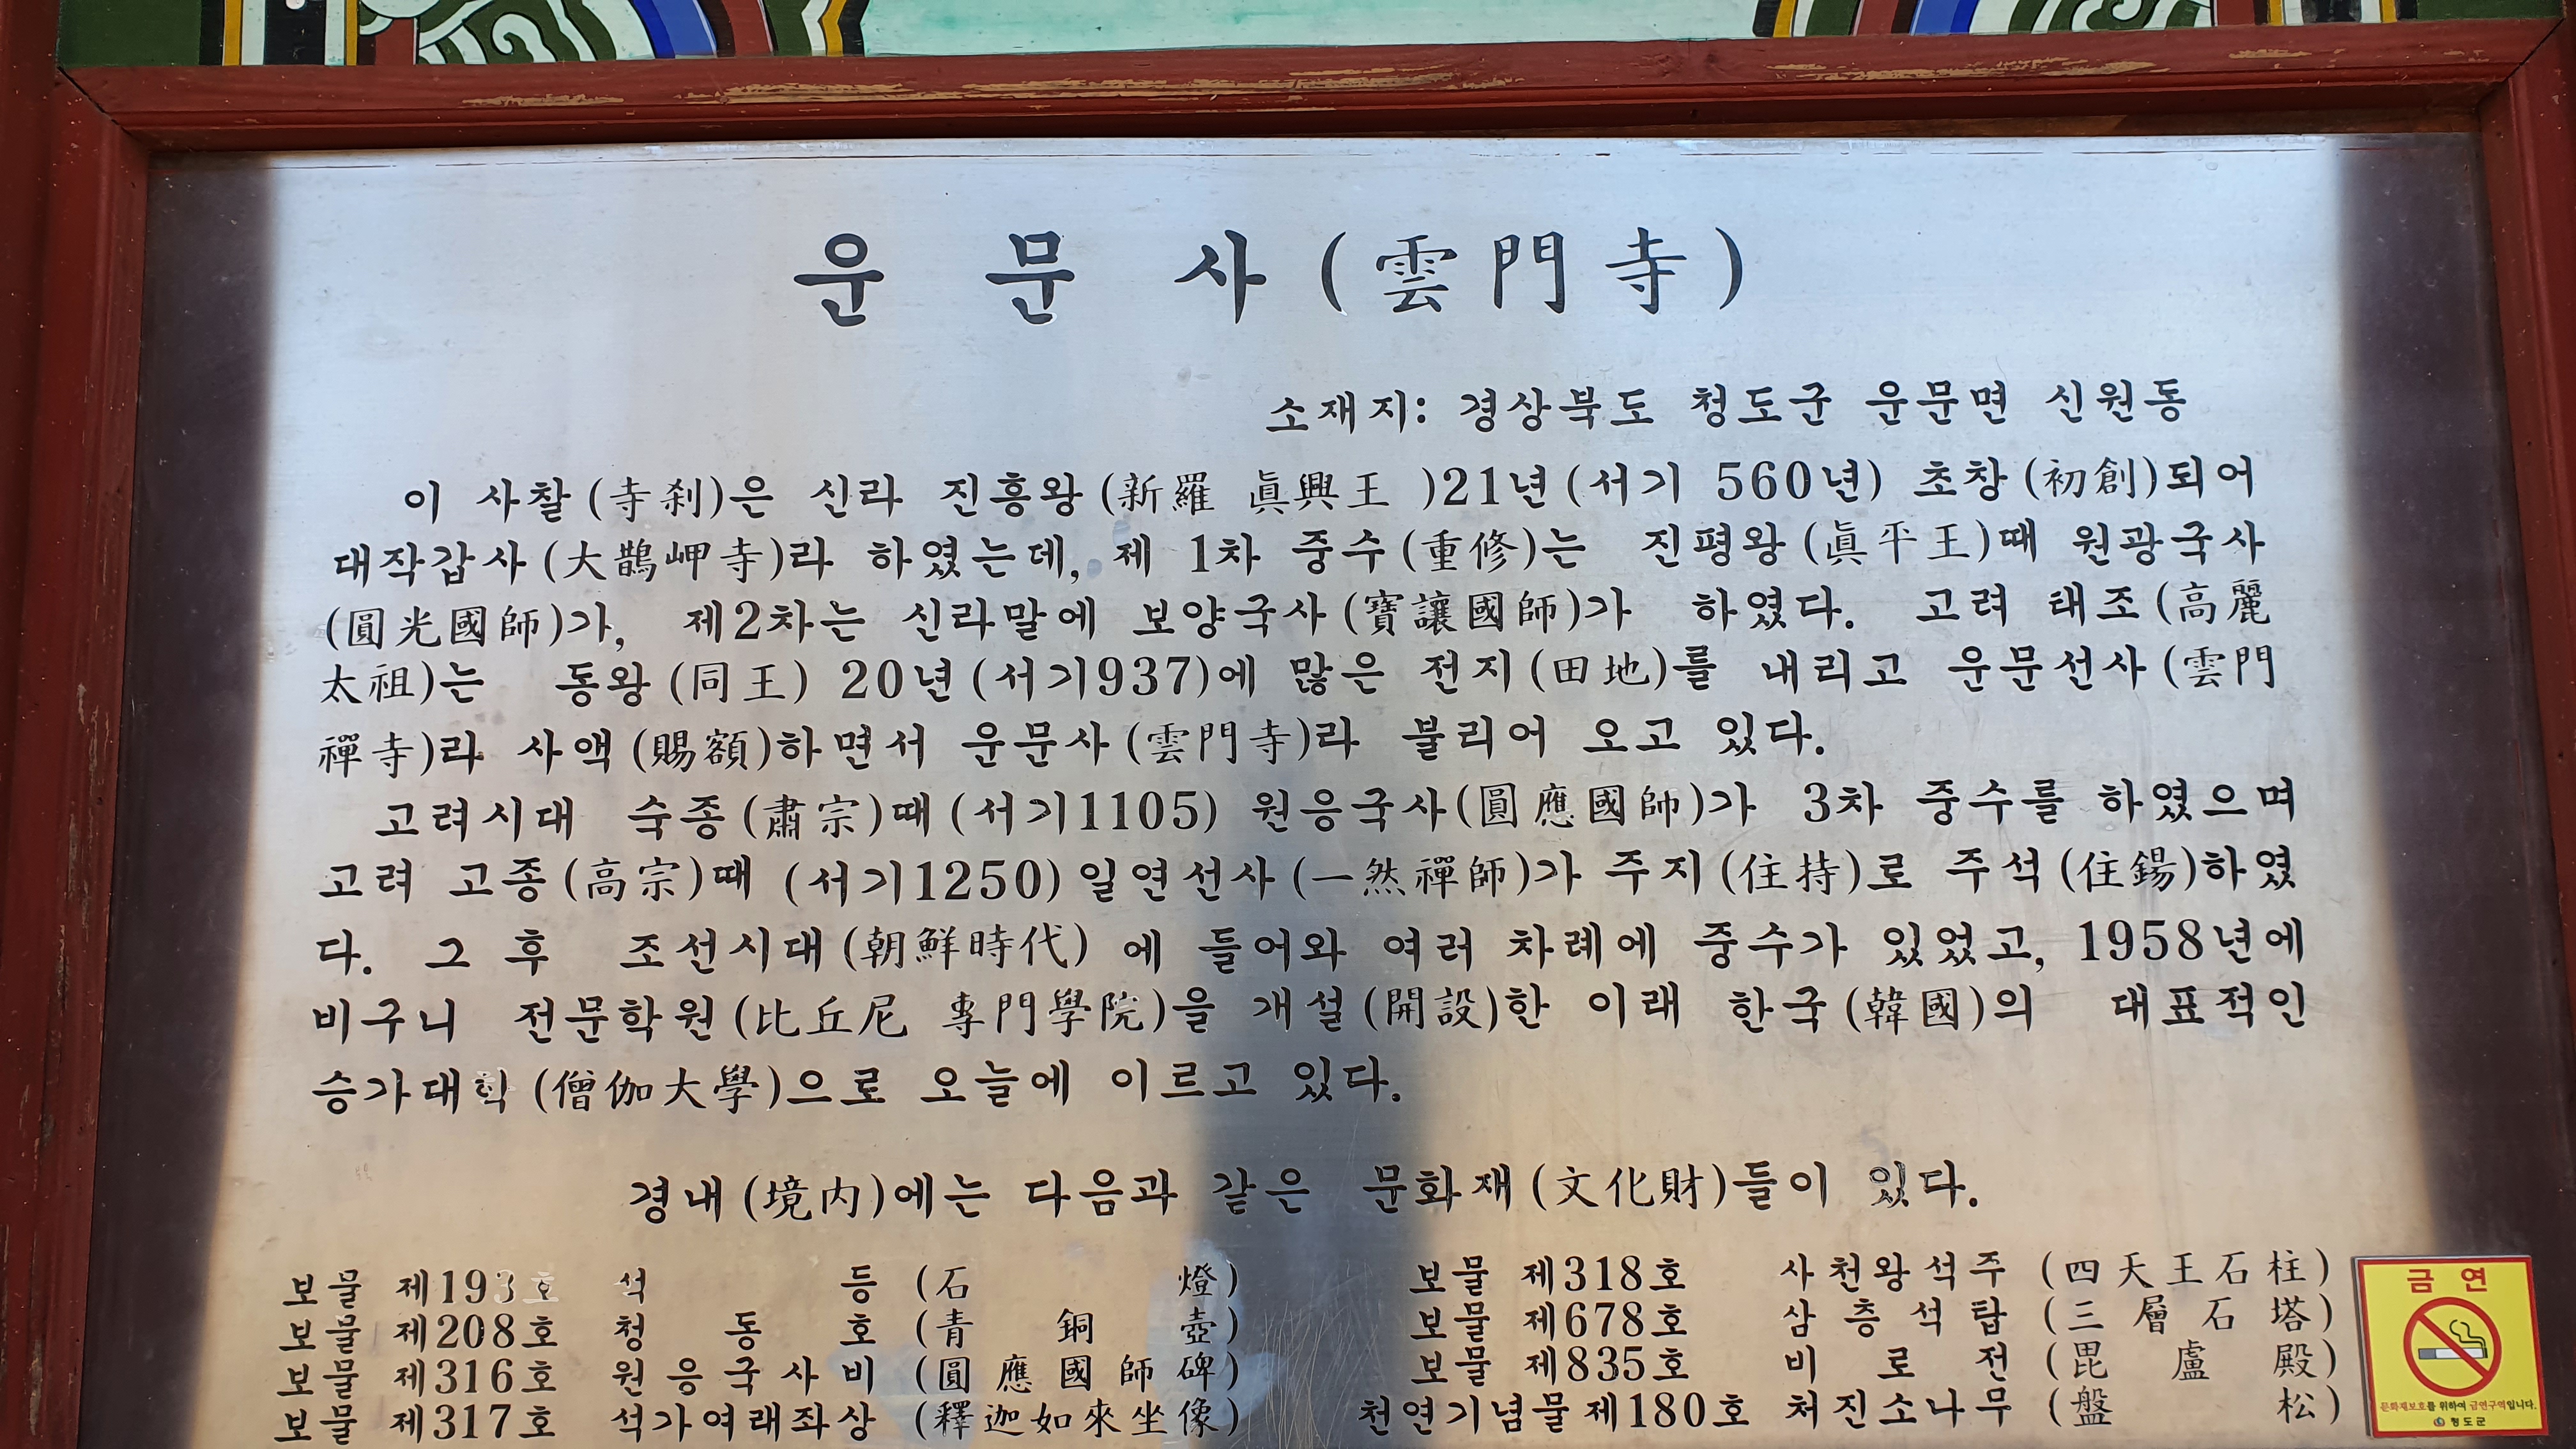 운 문 사 (雲門寺)
소재지: 경상북도 청도군 운문면 신원동
이 사찰(寺刹)은 신라 진흥왕(新羅 眞興王 )21년(서기 560년) 초창(初創)되어
대작갑사(大鵲岬寺)라 하였는데, 제 1차 중수(重修)는 진평왕(眞平王)때 원광국사
(圓光國師)가, 제2차는 신라말에 보양국사(寶讓國師)가 하였다. 고려 태조(高麗
太祖)는 동왕(同王) 20년(서기937)에 많은 전지(田地)를 내리고 운문선사(雲門
禪寺)라 사액(賜額)하면서 운문사(雲門寺)라 불리어 오고 있다.
고려시대 숙종(肅宗)때(서기1105) 원응국사(圓應國師)가 3차 중수를 하였으며
고려 고종(高宗)때 (서기1250) 일연선사(一然禪師)가 주지(住持)로 주석(住鍚)하였
다. 그 후 조선시대(朝鮮時代) 에 들어와 여러 차례에 중수가 있었고, 1958년에
비구니 전문학원(比丘尼 專門學院)을 개설(開設)한 이래 한국(韓國)의 대표적인
승가대학(僧伽大學)으로 오늘에 이르고 있다.
경내(境內)에는 다음과 같은 문화재(文化財)들이 있다.
보물 제193호 석 등 (石 燈)
보물 제208호 청 동 호 (靑 銅 壺)
보물 제316호 원응국사비 (圓應國師碑)
보물 제317호 석가여래좌상 (釋迦如來坐像)
보물 제318호 사천왕석주 (四天王石柱)
보물 제678호 삼층석탑 (三層石塔)
보물 제835호 비 로 전 (毘 盧 殿)
천연기념물 제180호 처진소나무 (盤 松)
금 연
문화재보호를 위하여 금연구역입니다.
청도군